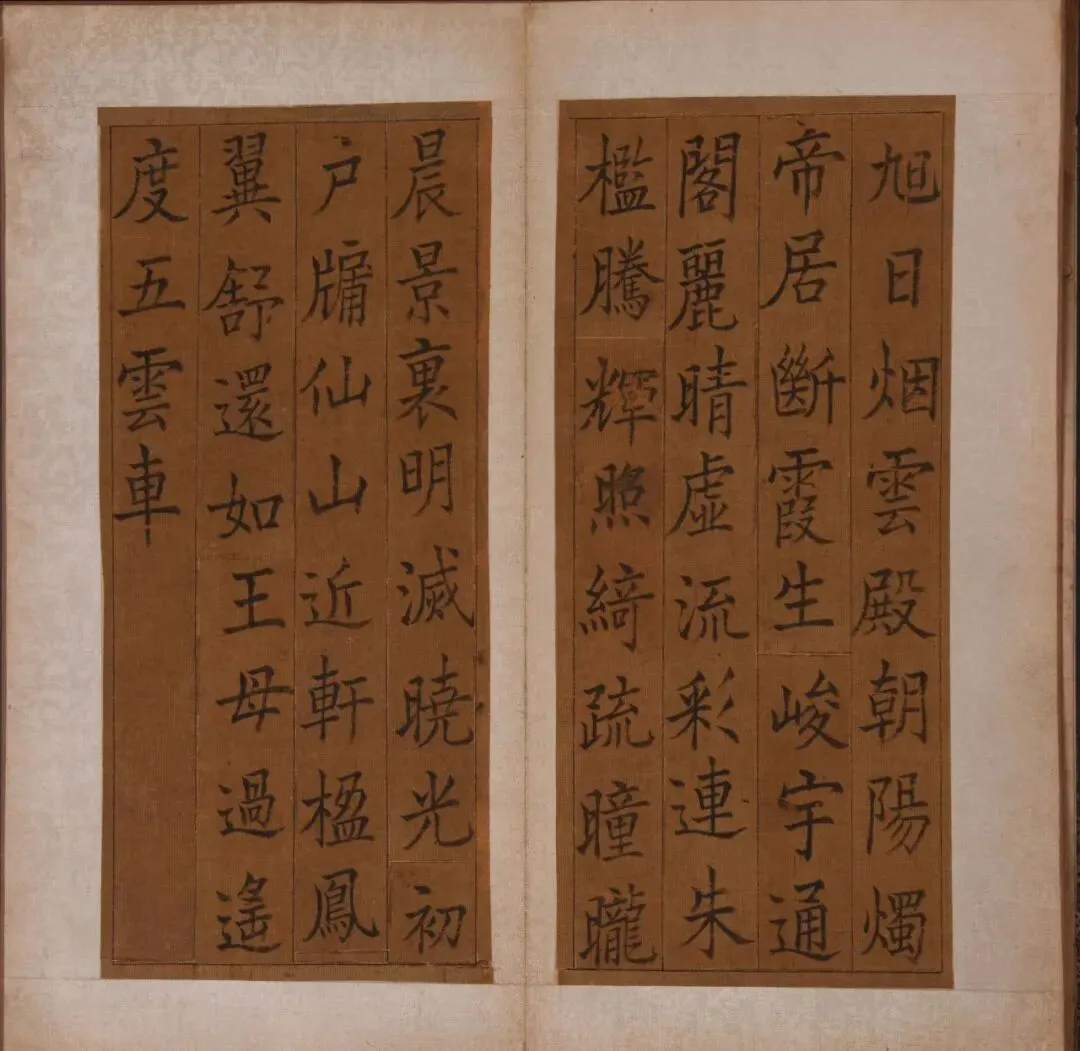 旭日烟雲殿朝陽燭
帝居斷霞生峻宇通
閣麗晴虛流彩連朱
檻騰輝照綺疏曈曨
晨景裏明滅曉光初
户牖仙山近軒楹鳳
翼舒還如王母過遙
度五雲車